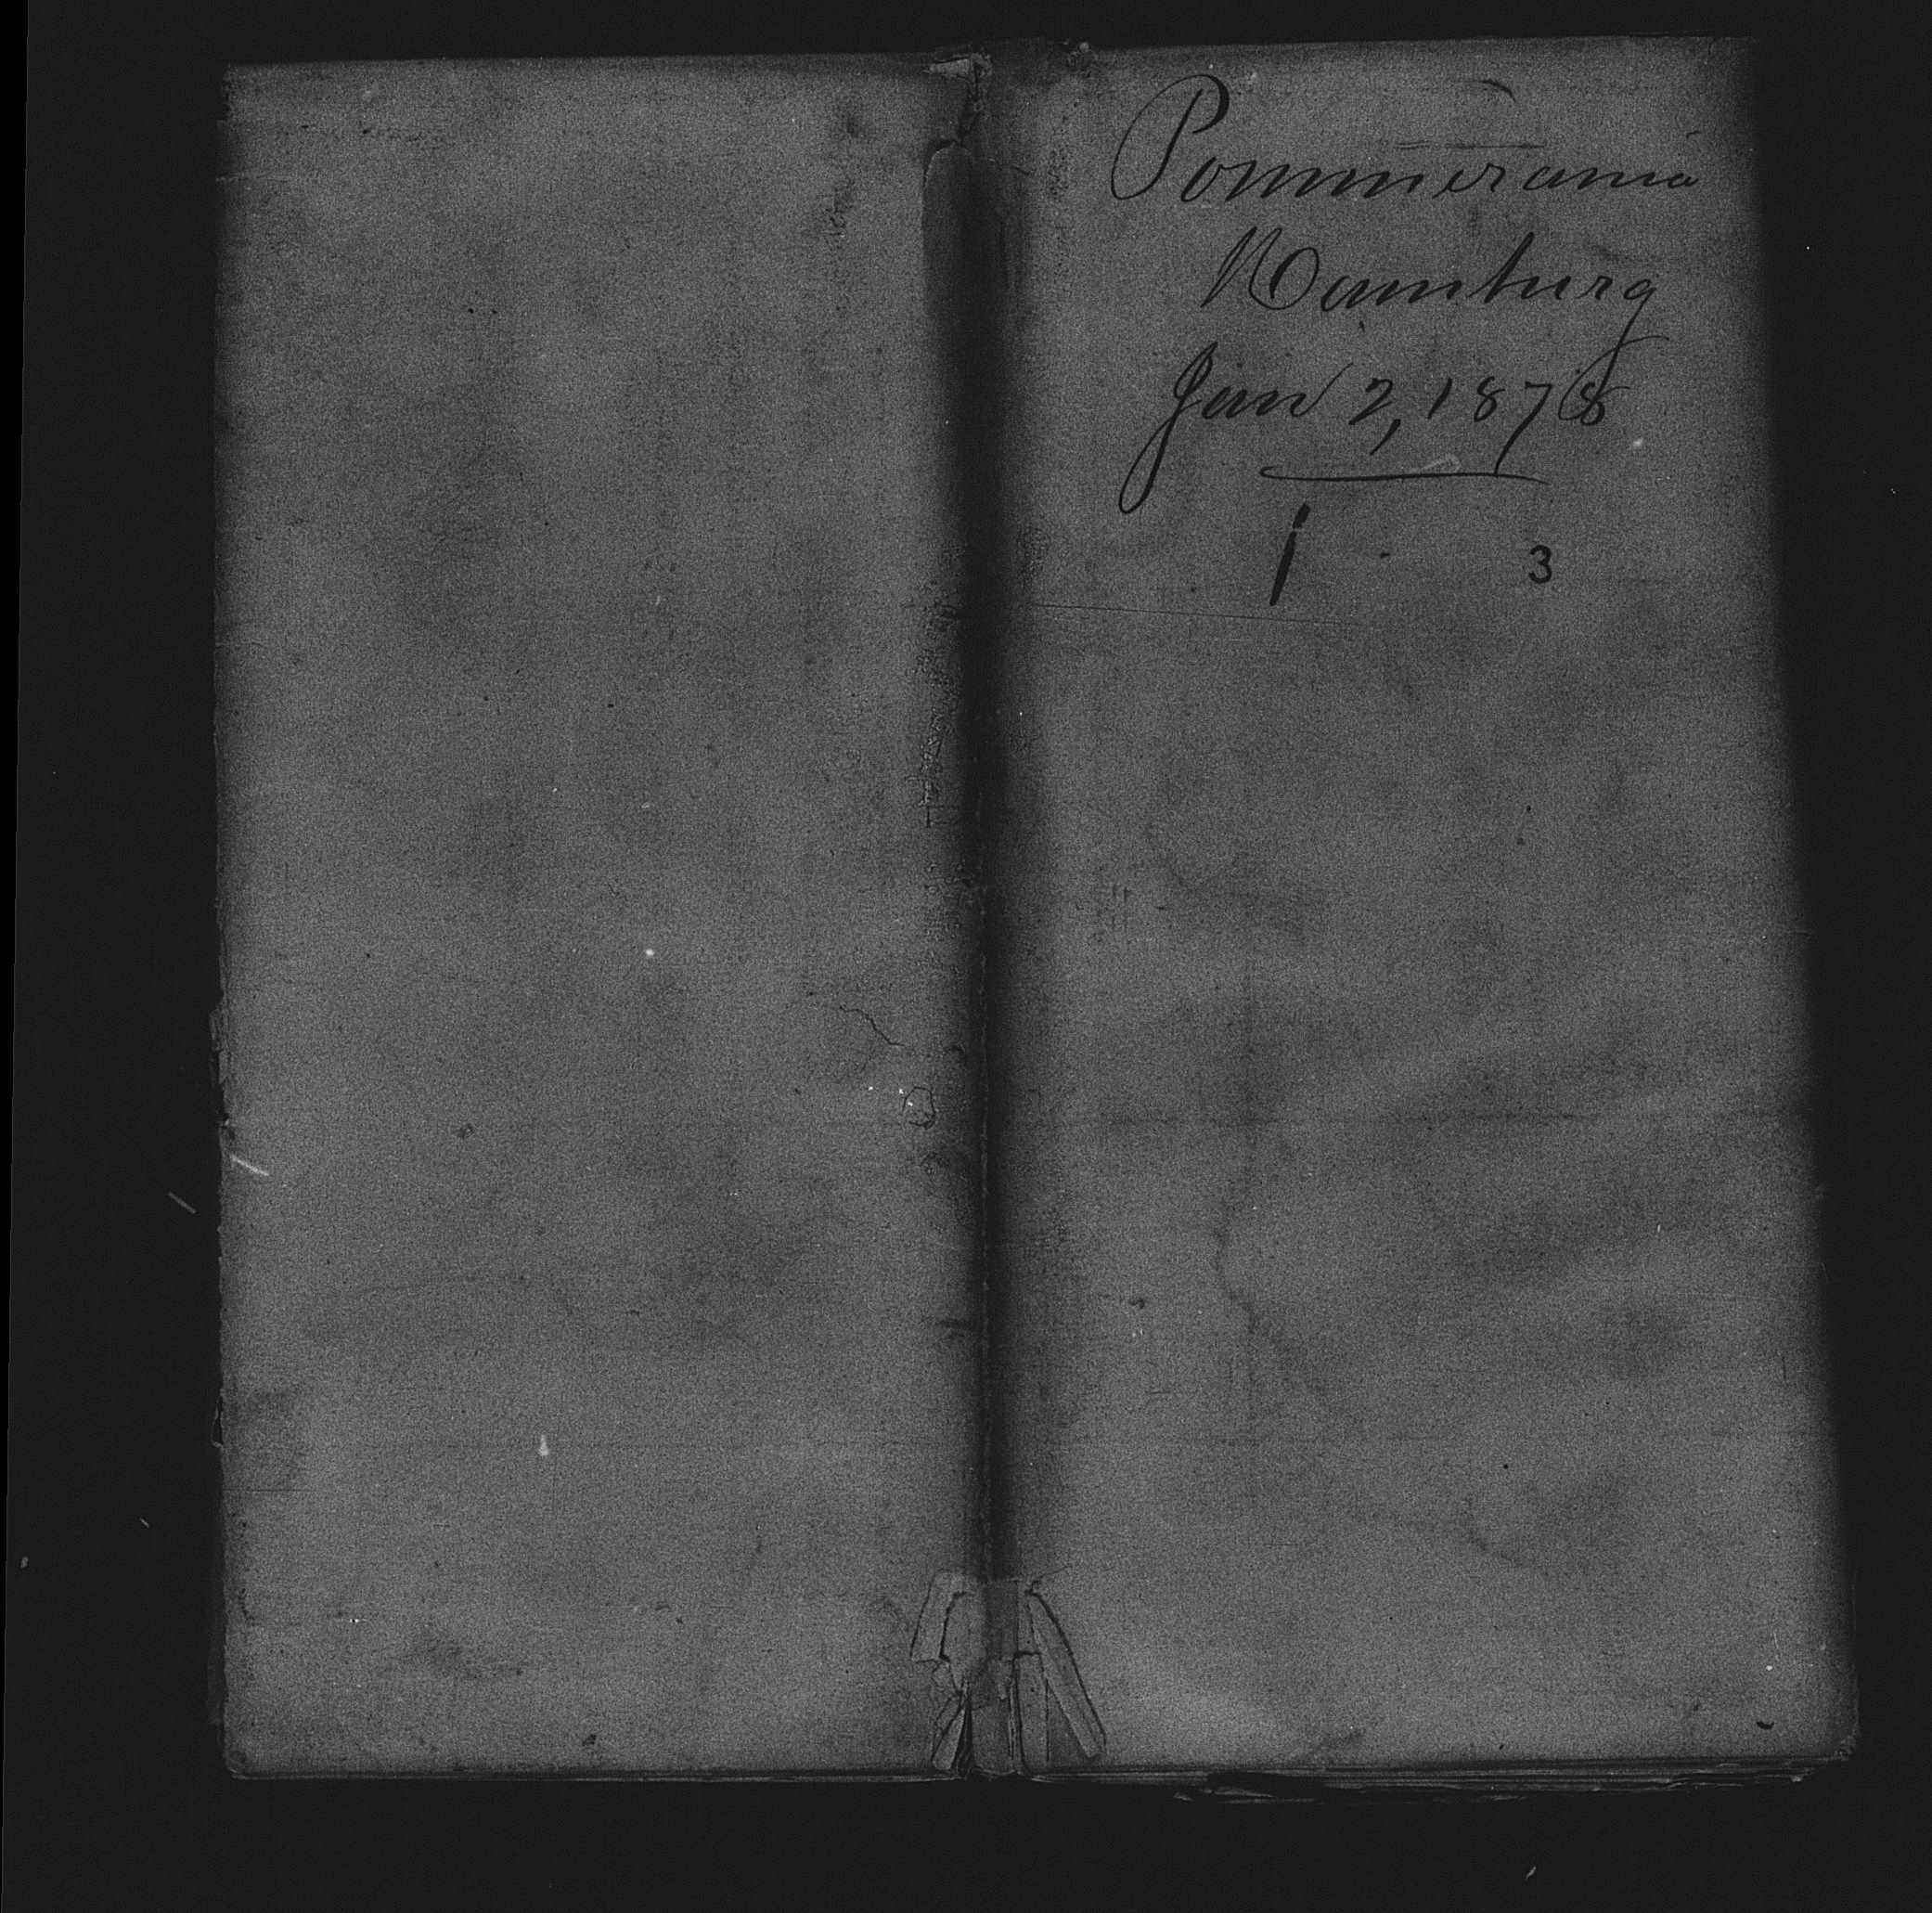 Pommerania
Hamburg
Jan 2, 1878
1 3